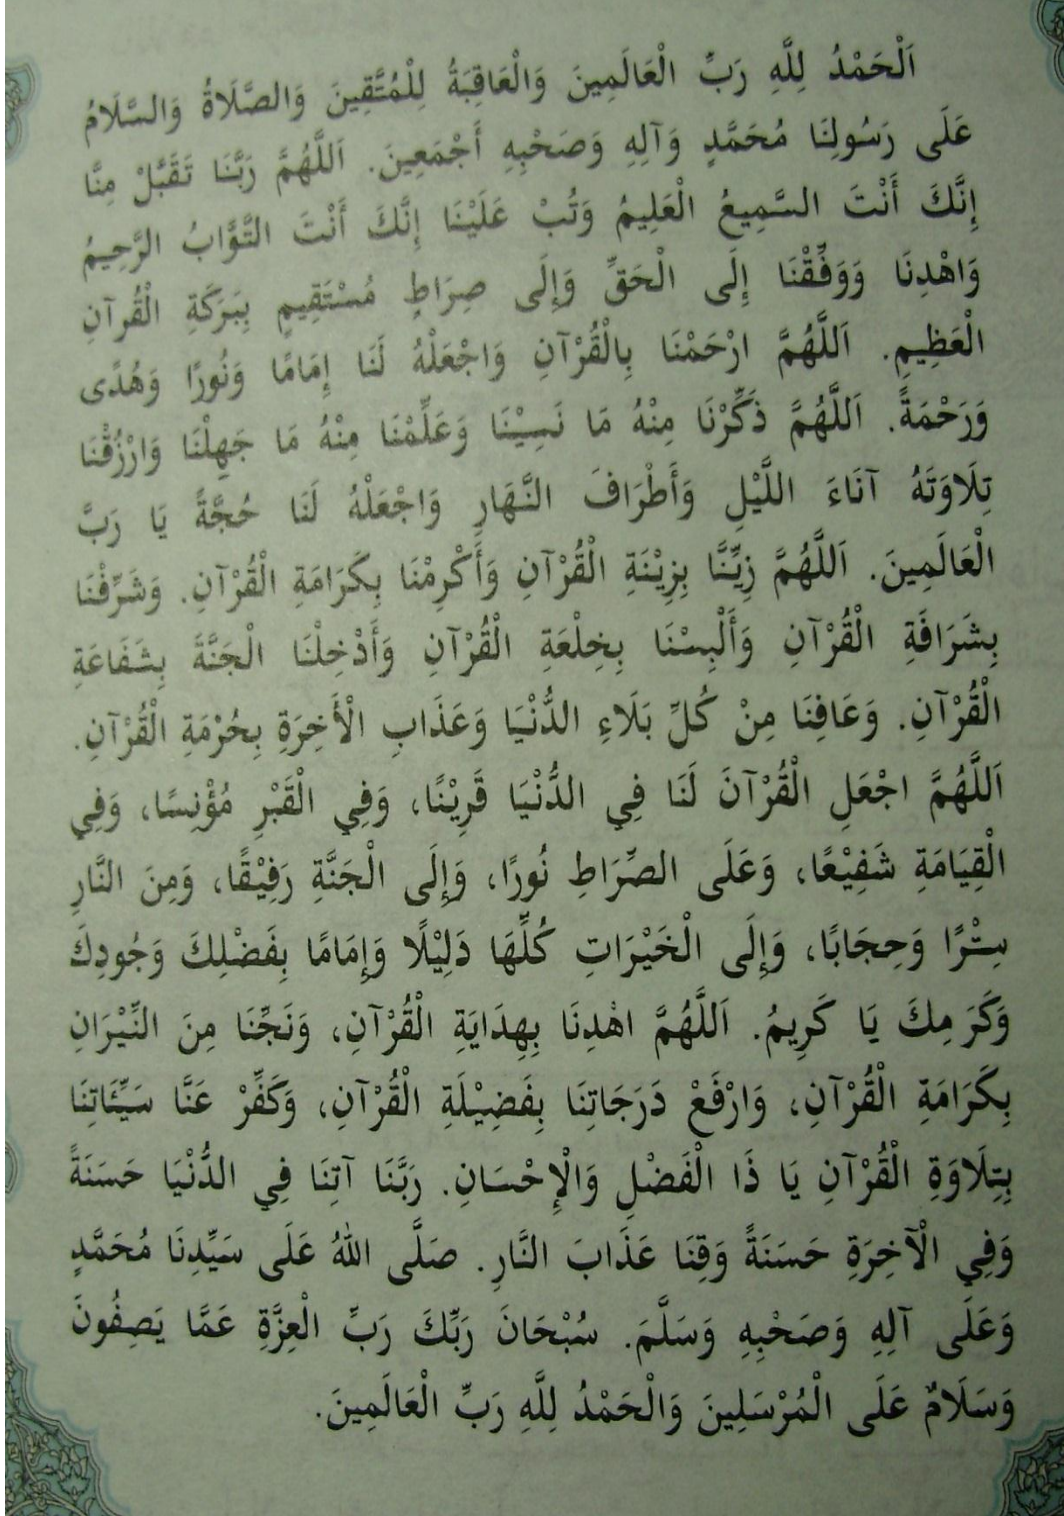 اَلْحَمْدُ لِلَّهِ رَبِّ الْعَالَمِينَ وَالْعَاقِبَةُ لِلْمُتَّقِينَ وَالصَّلَاةُ وَالسَّلَامُ
عَلَى رَسُولِنَا مُحَمَّدٍ وَآلِهِ وَصَحْبِهِ أَجْمَعِينَ. اَللَّهُمَّ رَبَّنَا تَقَبَّلْ مِنَّا
إِنَّكَ أَنْتَ السَّمِيعُ الْعَلِيمُ وَتُبْ عَلَيْنَا إِنَّكَ أَنْتَ التَّوَّابُ الرَّحِيمُ
وَاهْدِنَا وَوَفِّقْنَا إِلَى الْحَقِّ وَإِلَى صِرَاطٍ مُسْتَقِيمٍ بِبَرَكَةِ الْقُرآنِ
الْعَظِيمِ. اَللَّهُمَّ ارْحَمْنَا بِالْقُرْآنِ وَاجْعَلْهُ لَنَا إِمَامًا وَنُورًا وَهُدًى
وَرَحْمَةً. اَللَّهُمَّ ذَكِّرْنَا مِنْهُ مَا نَسِيْنَا وَعَلِّمْنَا مِنْهُ مَا جَهِلْنَا وَارْزُقْنَا
تِلَاوَتَهُ آنَاءَ اللَّيْلِ وَأَطْرَافَ النَّهَارِ وَاجْعَلْهُ لَنَا حُجَّةً يَا رَبَّ
الْعَالَمِينَ. اَللَّهُمَّ زِيِّنَّا بِزِيْنَةِ الْقُرْآنِ وَأَكْرِمْنَا بِكَرَامَةِ الْقُرْآنِ. وَشَرِّفْنَا
بِشَرَافَةِ الْقُرْآنِ وَأَلْبِسْنَا بِخِلْعَةِ الْقُرْآنِ وَأَدْخِلْنَا الْجَنَّةَ بِشَفَاعَةِ
الْقُرْآنِ. وَعَافِنَا مِنْ كُلِّ بَلَاءِ الدُّنْيَا وَعَذَابِ الْأَخِرَةِ بِحُرْمَةِ الْقُرْآنِ.
اَللَّهُمَّ اجْعَلِ الْقُرْآنَ لَنَا فِي الدُّنْيَا قَرِيْنًا، وَفِي الْقَبْرِ مُؤْنِسًا، وَفِي
الْقِيَامَةِ شَفِيْعًا، وَعَلَى الصِّرَاطِ نُورًا، وَإِلَى الْجَنَّةِ رَفِيْقًا، وَمِنَ النَّارِ
سِتْرًا وَحِجَابًا، وَإِلَى الْخَيْرَاتِ كُلِّهَا دَلِيْلًا وَإِمَامًا بِفَضْلِكَ وَجُودِكَ
وَكَرَمِكَ يَا كَرِيمُ. اَللَّهُمَّ اهْدِنَا بِهِدَايَةِ الْقُرْآنِ، وَنَجِّنَا مِنَ النِّيْرَانِ
بِكَرَامَةِ الْقُرْآنِ، وَارْفَعْ دَرَجَاتِنَا بِفَضِيْلَةِ الْقُرْآنِ، وَكَفِّرْ عَنَّا سَيِّئَاتِنَا
بِتِلَاوَةِ الْقُرْآنِ يَا ذَا الْفَضْلِ وَالْإِحْسَانِ. رَبَّنَا آتِنَا فِي الدُّنْيَا حَسَنَةً
وَفِي الْآخِرَةِ حَسَنَةً وَقِنَا عَذَابَ النَّارِ. صَلَّى اللهُ عَلَى سَيِّدِنَا مُحَمَّدٍ
وَعَلَى آلِهِ وَصَحْبِهِ وَسَلَّمَ. سُبْحَانَ رَبِّكَ رَبِّ الْعِزَّةِ عَمَّا يَصِفُونَ
وَسَلَامٌ عَلَى الْمُرْسَلِينَ وَالْحَمْدُ لِلَّهِ رَبِّ الْعَالَمِينَ.